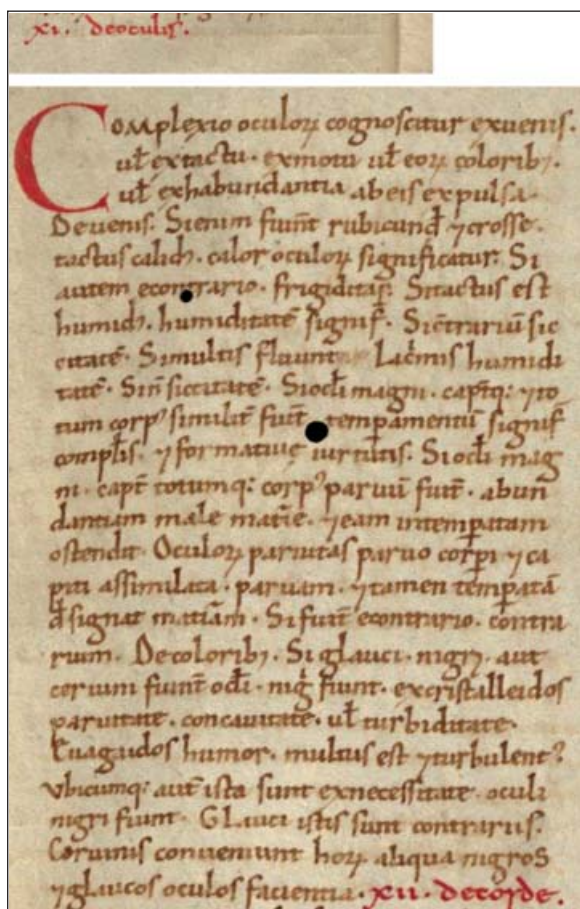 xi. de oculis.
COMplexio oculoꝝ cognoscitur ex uenis.
ul̄ ex tactu. ex motu ul̄ eoꝝ colorib;.
ul̄ ex habundantia ab eis expulsa.
De uenis. Si enim fiunt̄ rubicund̄ ⁊ crosse.
tactus calid̄. calor oculoꝝ significatur. Si
autem econtrario. frigiditas. Si tactus est
humid̄. humiditatē signif̄. Si ɔ̄trariū sic
citatē. Si multis fluunt Lac̄mis humidi
tatē. Sin̄ siccitatē. Si ocl̄i magni. capt̄q: ⁊ to
tum corpꝰ similit̄ fuit̄ temꝑamentū signif̄
compl̄is. ⁊ formatiuę uirtutis. Si ocl̄i mag
ni. capt̄ totumq: corpꝰ paruū fuit̄. abun
dantiam male mat̄ie. ⁊ eam intemꝑatam
ostendit. Oculoꝝ paruitas paruo corꝑi ⁊ ca
piti assimilata. paruam. ⁊ tamen temꝑatā
d̄signat mat̄iam. Si fuit̄ econtrario. contra
rium. De colorib;. Si glauci. nigri. aut
coruini fiunt̄ ocl̄i. nigͥ fiunt. ex cristalleidos
paruitate. concauitate. ul̄ turbiditate.
Euagaidos humor. multus est ⁊ turbulentꝰ
Vbicumq: aut̄ ista sunt ex necessitate. oculi
nigri fiunt. GLauci istis sunt contrarii.
Coruinis conueniunt hoꝝ aliqua nigros
⁊ glaucos oculos facientia. xii. de corde.